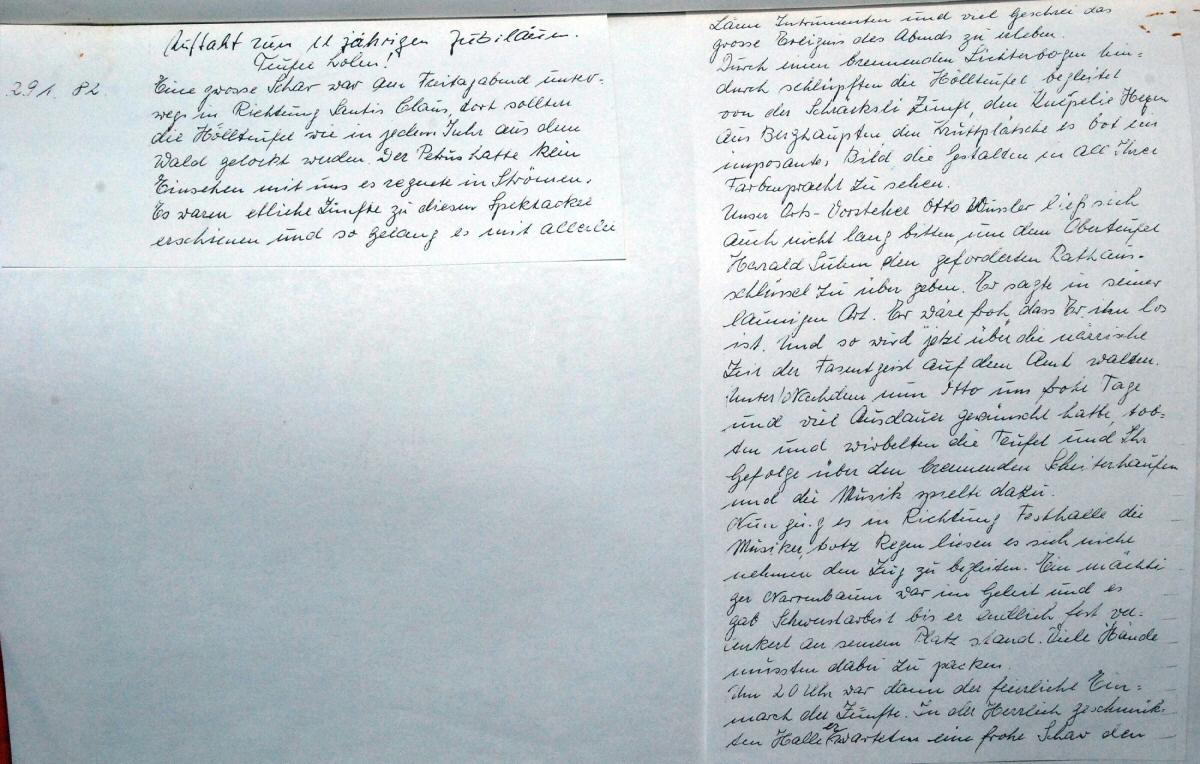 Auftakt zum 11 jährigen Jubiläum.
Teufel holen!
29.1.82. Eine grosse Schar war am Freitagabend unter-
wegs in Richtung Santis Claus, dort sollten
die Höllteufel wie in jedem Jahr aus dem
Wald gelockt werden. Der Petrus hatte kein
Einsehen mit uns es regnete in Strömen.
Es waren etliche Zünfte zu diesem Spektackel
erschienen und so gelang es mit allerlei
Lärm Instrumenten und viel Geschrei das
grosse Ereignis des Abends zu erleben.
Durch einen brennenden Lichterbogen hin=
durch schlüpften die Höllteufel begleitet
von der Schracksli Zunft, den Hexen
aus Berghaupten den es bot ein
imposantes Bild die Gestalten in all Ihrer
Farbenpracht zu sehen.
Unser Orts-Vorsteher Otto Wussler ließ sich
auch nicht lang bitten, um dem Oberteufel
Harald Suhm den geforderten Rathaus-
schlüssel zu über geben. Er sagte in seiner
launigen Art. Er wäre froh, dass Er ihn los
ist. Und so wird jetzt über die närrische
Zeit der Fasentgeist auf dem Amt walten.
Nachdem nun Otto uns frohe Tage
und viel Ausdauer gewünscht hatte, tob=
ten und wirbelten die Teufel und Ihr
Gefolge über den brennenden Scheiterhaufen
und die Musik spielte dazu.
Nun ging es in Richtung Festhalle die
Musiker, trotz Regen liesen es sich nicht
nehmen den Zug zu begleiten. Ein mächti
ger Narrenbaum war im Geleit und es
gab Schwerstarbeit bis er endlich fest ver-
ankert an seinem Platz stand. Viele Hände
mussten dabei zu packen.
Um 20 Uhr war dann der feierliche Ein=
marsch der Zünfte. In der Herrlich geschmück-
ten Halle erwarteten eine frohe Schar den